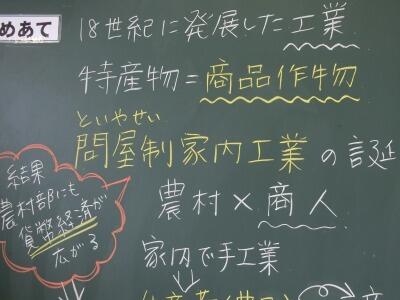 めあて
18世紀に発展した工業
特産物=商品作物
といやせい
問屋制家内工業の誕
農村×商人
家内で手工業
結果
農村部にも
貨幣経済が
広がる